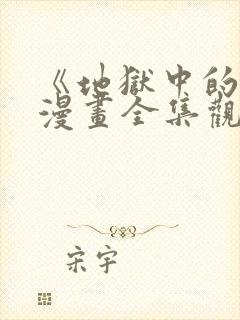 《地獄中的
漫畫全集觀
宋宇